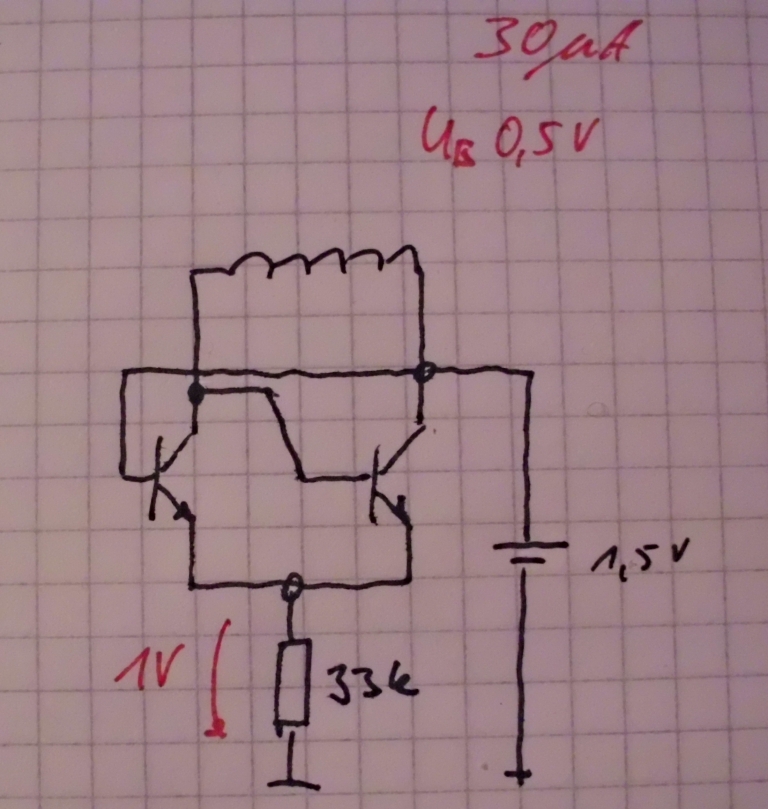 30µA
UB 0,5V
1,5V
1V
33k